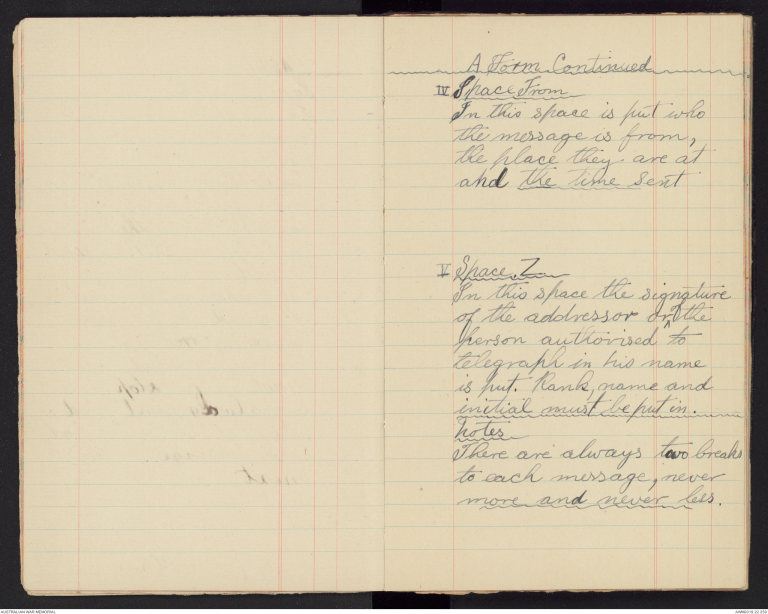 A Form Continued
IV Space From
In this space is put who
the message is from,
the place they are at
and the time sent
V Space Z
In this space the signature
of the addressor or of the
person authorised to
telegraph in his name
is put. Rank, name and
initial must be put in.
Notes
There are always two breaks
to each message, never
more and never less.
AUSTRALIAN WAR MEMORIAL